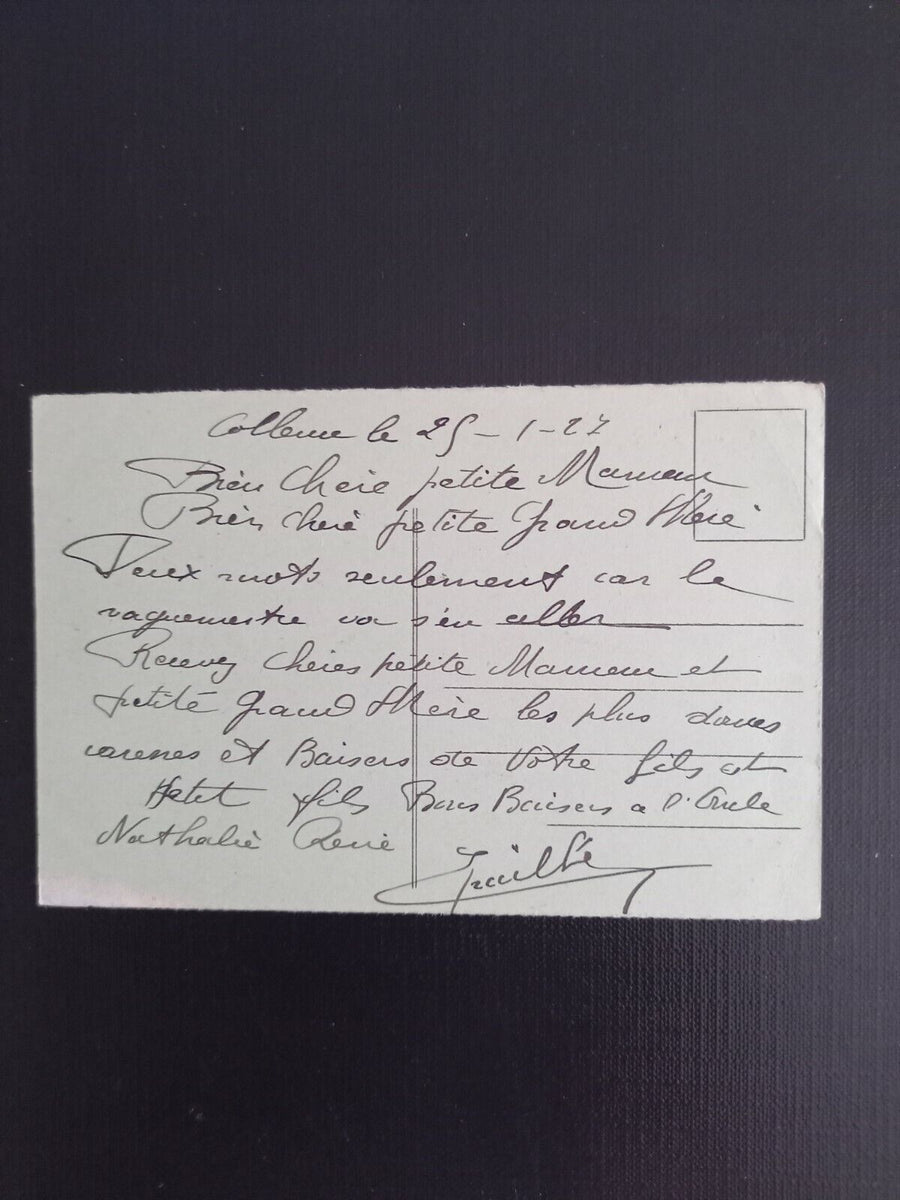 le 25-1-27
Bien Chère petite Maman
Bien chère petite Grand Mère
Deux mots seulement car le
vaguemestre va s'en aller
Recevez chères petite Maman et
petite Grand Mère les plus douces
caresses et Baisers de Votre fils et
Petit fils Bons Baisers a l'Oncle
Nathalie René